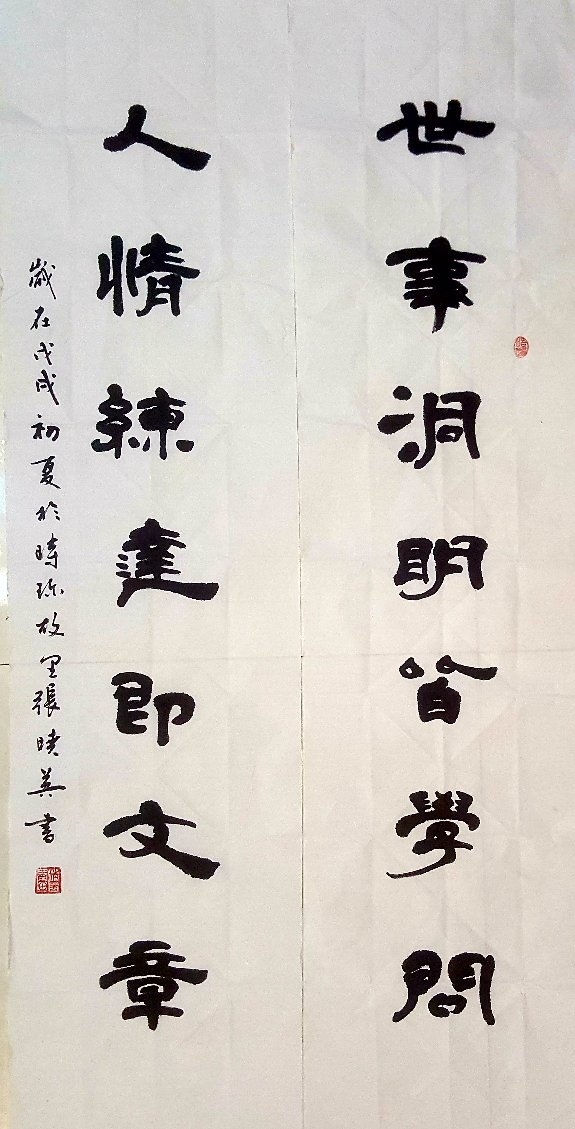 世事洞明皆學問
人情練達即文章
歲在戊戌初夏於時珍故里張暎英書